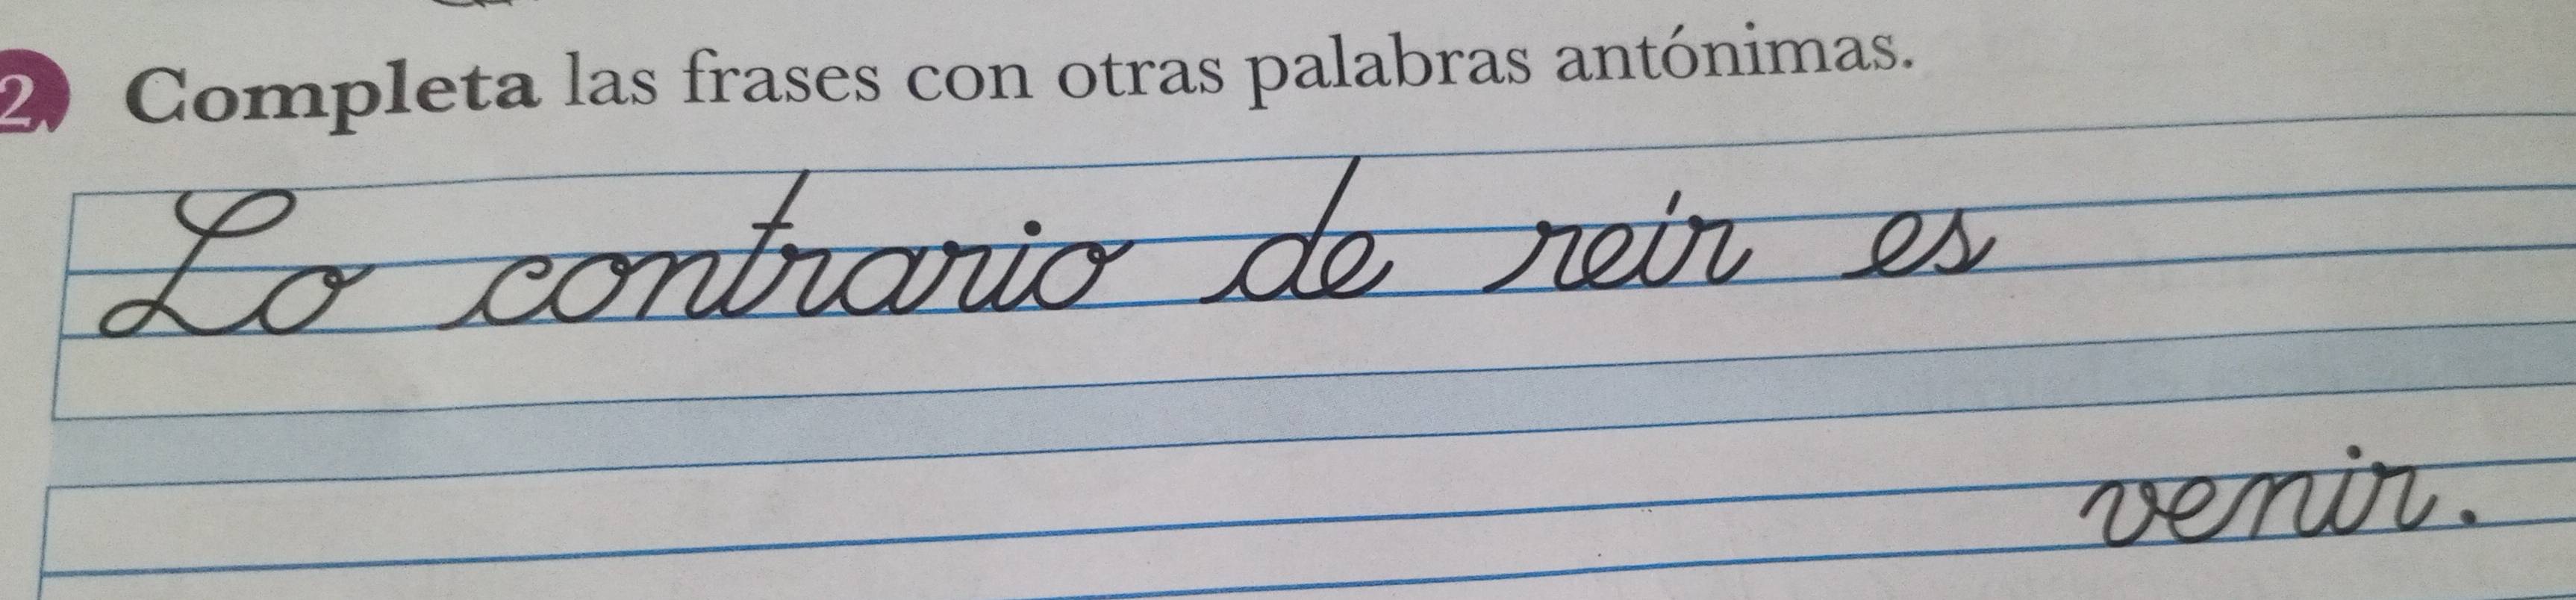 2 Completa las frases con otras palabras antónimas.
Lo contrario de reír es
venir.